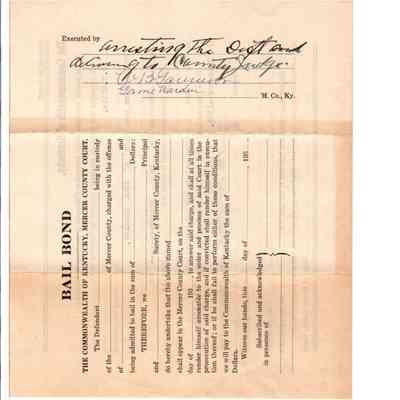 Executed by arresting the Deft and
delivering to County Judge.
Game Warden
M. Co., Ky.
BAIL BOND
THE COMMONWEALTH OF KENTUCKY, MERCER COUNTY COURT.
The Defendant being in custody
of the of Mercer County, charged with the offense
of and
being admitted to bail in the sum of Dollars:
THEREFORE, we Principal
and Surety, of Mercer County, Kentucky,
do hereby undertake that the above named
shall appear in the Mercer County Court, on the
day of 193 , to answer said charge, and shall at all times
render himself amenable to the order and process of said Court in the
prosecution of said charge, and if convicted shall render himself in execu-
tion thereof; or if he shall fail to perform either of these conditions, that
we will pay to the Commonwealth of Kentucky the sum of
Dollars.
Witness our hands, this day of , 193
Subscribed and acknowledged
in presence of